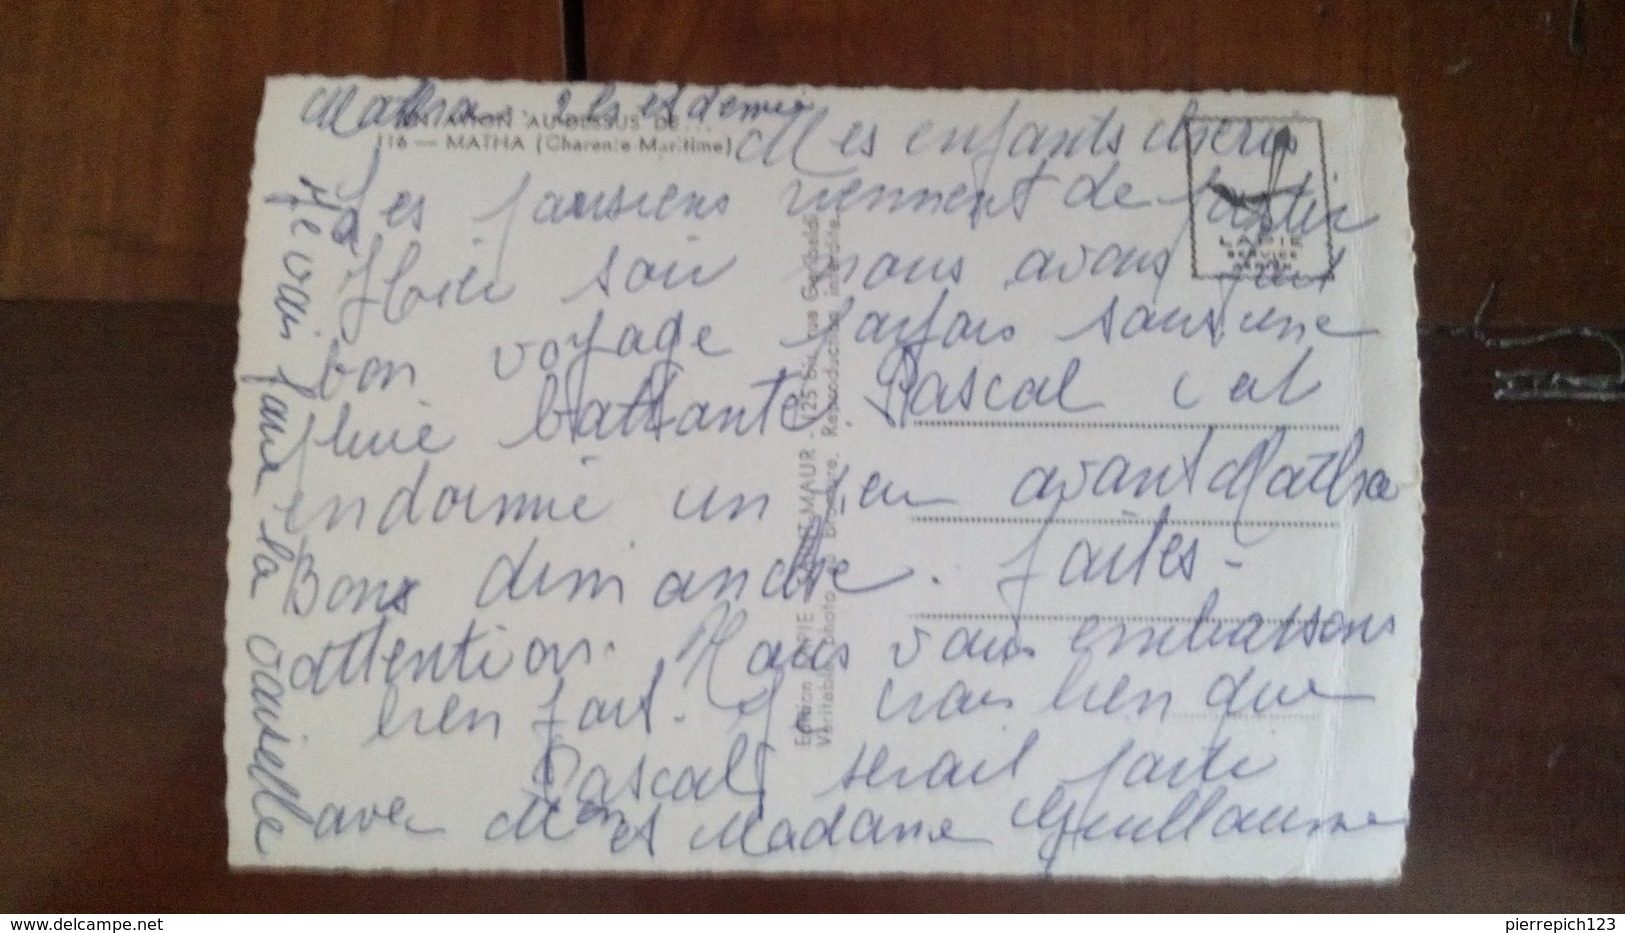 Matha 2 hs et demie
EN AVION AU-DESSUS DE...
116 — MATHA (Charente-Maritime)
Mes enfants cheris
Les parisiens viennent de partir
Hier soir nous avons fait
bon voyage parfois sous une
pluie battante Pascal c est
endormie un peu avant Matha
Bons dimanche. faites-
attention. Nous vous embrassons
bien fort. Je crois bien que
Pascal serait parti
avec Mr et Madame Guillaume
Je vais faire la vaiselle
LAPIE
SERVICE
AERIEN
Edition LAPIE - SAINT-MAUR - 125 bis, rue Garibaldi
Véritable photo au Bromure. Reproduction interdite.
www.delcampe.net
pierrepich123